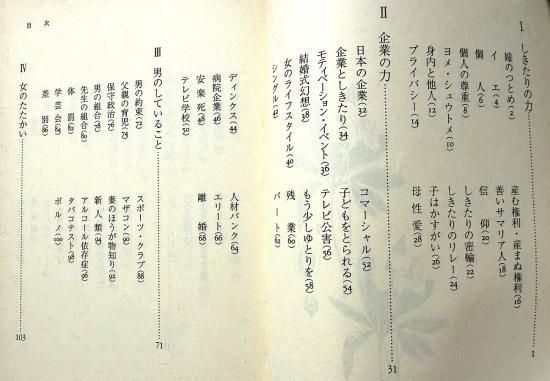 目次
I しきたりの力 1
嫁のつとめ(2)
イエ(4)
個人(6)
個人の尊重(8)
ヨメ・シュウトメ(10)
身内と他人(12)
プライバシー(14)
産む権利・産まぬ権利(16)
善いサマリア人(18)
信仰(20)
しきたりの密輪(22)
しきたりのリレー(24)
子はかすがい(26)
母性愛(28)
II 企業の力 31
日本の企業(32)
企業としきたり(34)
モティベーション・イベント(36)
結婚式幻想(38)
女のライフスタイル(40)
シングル(42)
ディンクス(44)
病院企業(46)
安楽死(48)
テレビ学校(50)
コマーシャル(52)
子どもをとられる(54)
テレビ公害(56)
もう少しゆとりを(58)
残業(60)
パート(62)
人材バンク(64)
エリート(66)
離婚(68)
III 男のしていること 71
男の約束(72)
父親の育児(74)
保守政治(76)
男の組合(78)
先生の組合(80)
体罰(82)
学芸会(84)
差別(86)
スポーツ・クラブ(88)
マザコン(90)
妻のほうが物知り(92)
新人類(94)
アルコール依存症(96)
タバコテスト(98)
ポルノ(100)
IV 女のたたかい 103